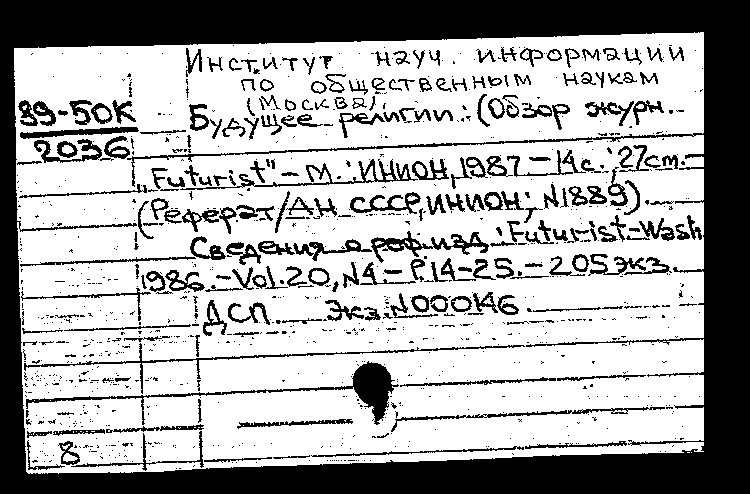 Институт науч. информации
по общественным наукам
(Москва).
99-50К
2036
Будущее религии: (Обзор журн.
"Futurist" - М.: ИНИОН, 1987 - 14с.; 27см. -
(Реферат/АН СССР, ИНИОН; N1889).
Сведения о реф.изд.: Futurist-Wash
1986. - Vol.20, N4. - P.14-25. - 205экз.
ДСП Экз.N000146.
8